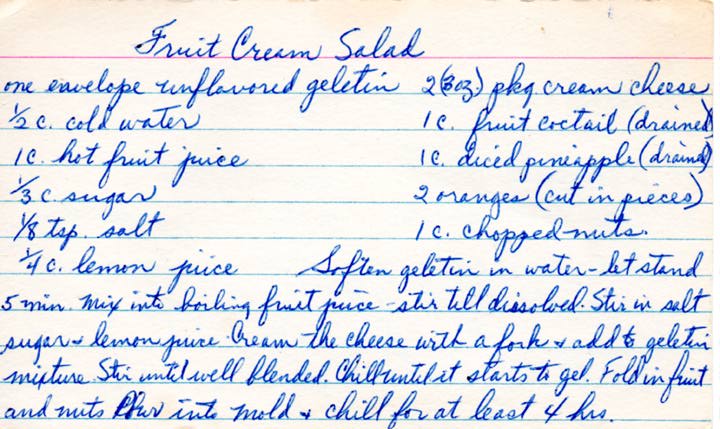 Fruit Cream Salad
one envelope unflavored geletin 2 (3oz.) pkg cream cheese
1/2 c. cold water 1 c. fruit coctail (drained)
1 c. hot fruit juice 1 c. diced pineapple (drained)
1/3 c. sugar 2 oranges (cut in pieces)
1/8 tsp. salt 1 c. chopped nuts.
1/4 c. lemon juice Soften geletin in water - let stand
5 min. Mix into boiling fruit juice - stir till dissolved. Stir in salt
sugar + lemon juice. Cream the cheese with a fork + add to geletin
mixture. Stir until well blended. Chill until it starts to gel. Fold in fruit
and nuts Pour into mold + chill for at least 4 hrs.